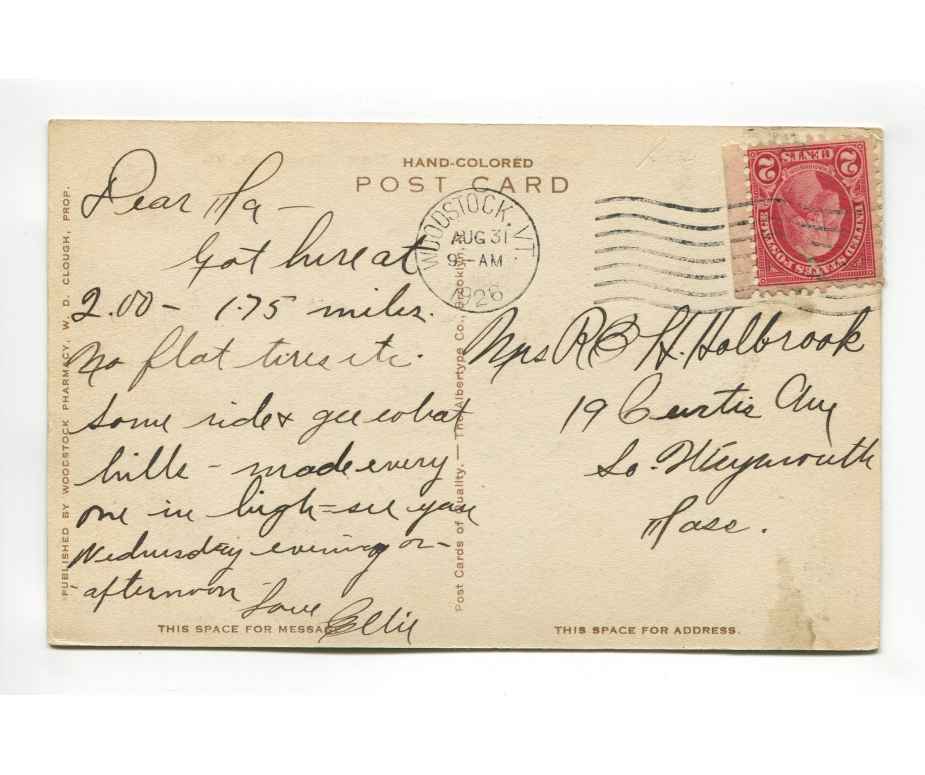 HAND-COLORED
POST CARD
Dear Ma –
Got here at
2.00 – 175 miles.
No flat tires etc.
Some ride & gee what
hills – made every
one in high = see you
Wednesday evening or –
afternoon
Love Ellie
THIS SPACE FOR MESSAG
PUBLISHED BY WOODSTOCK PHARMACY, W. D. CLOUGH, PROP.
Post Cards of Quality. — The Albertype Co., Brooklyn,
WOODSTOCK, VT.
AUG 31
9 – AM
1926
2 CENTS 2
UNITED STATES POSTAGE
Mrs R B H. Holbrook
19 Curtis Ave
So. Weymouth
Mass.
THIS SPACE FOR ADDRESS.